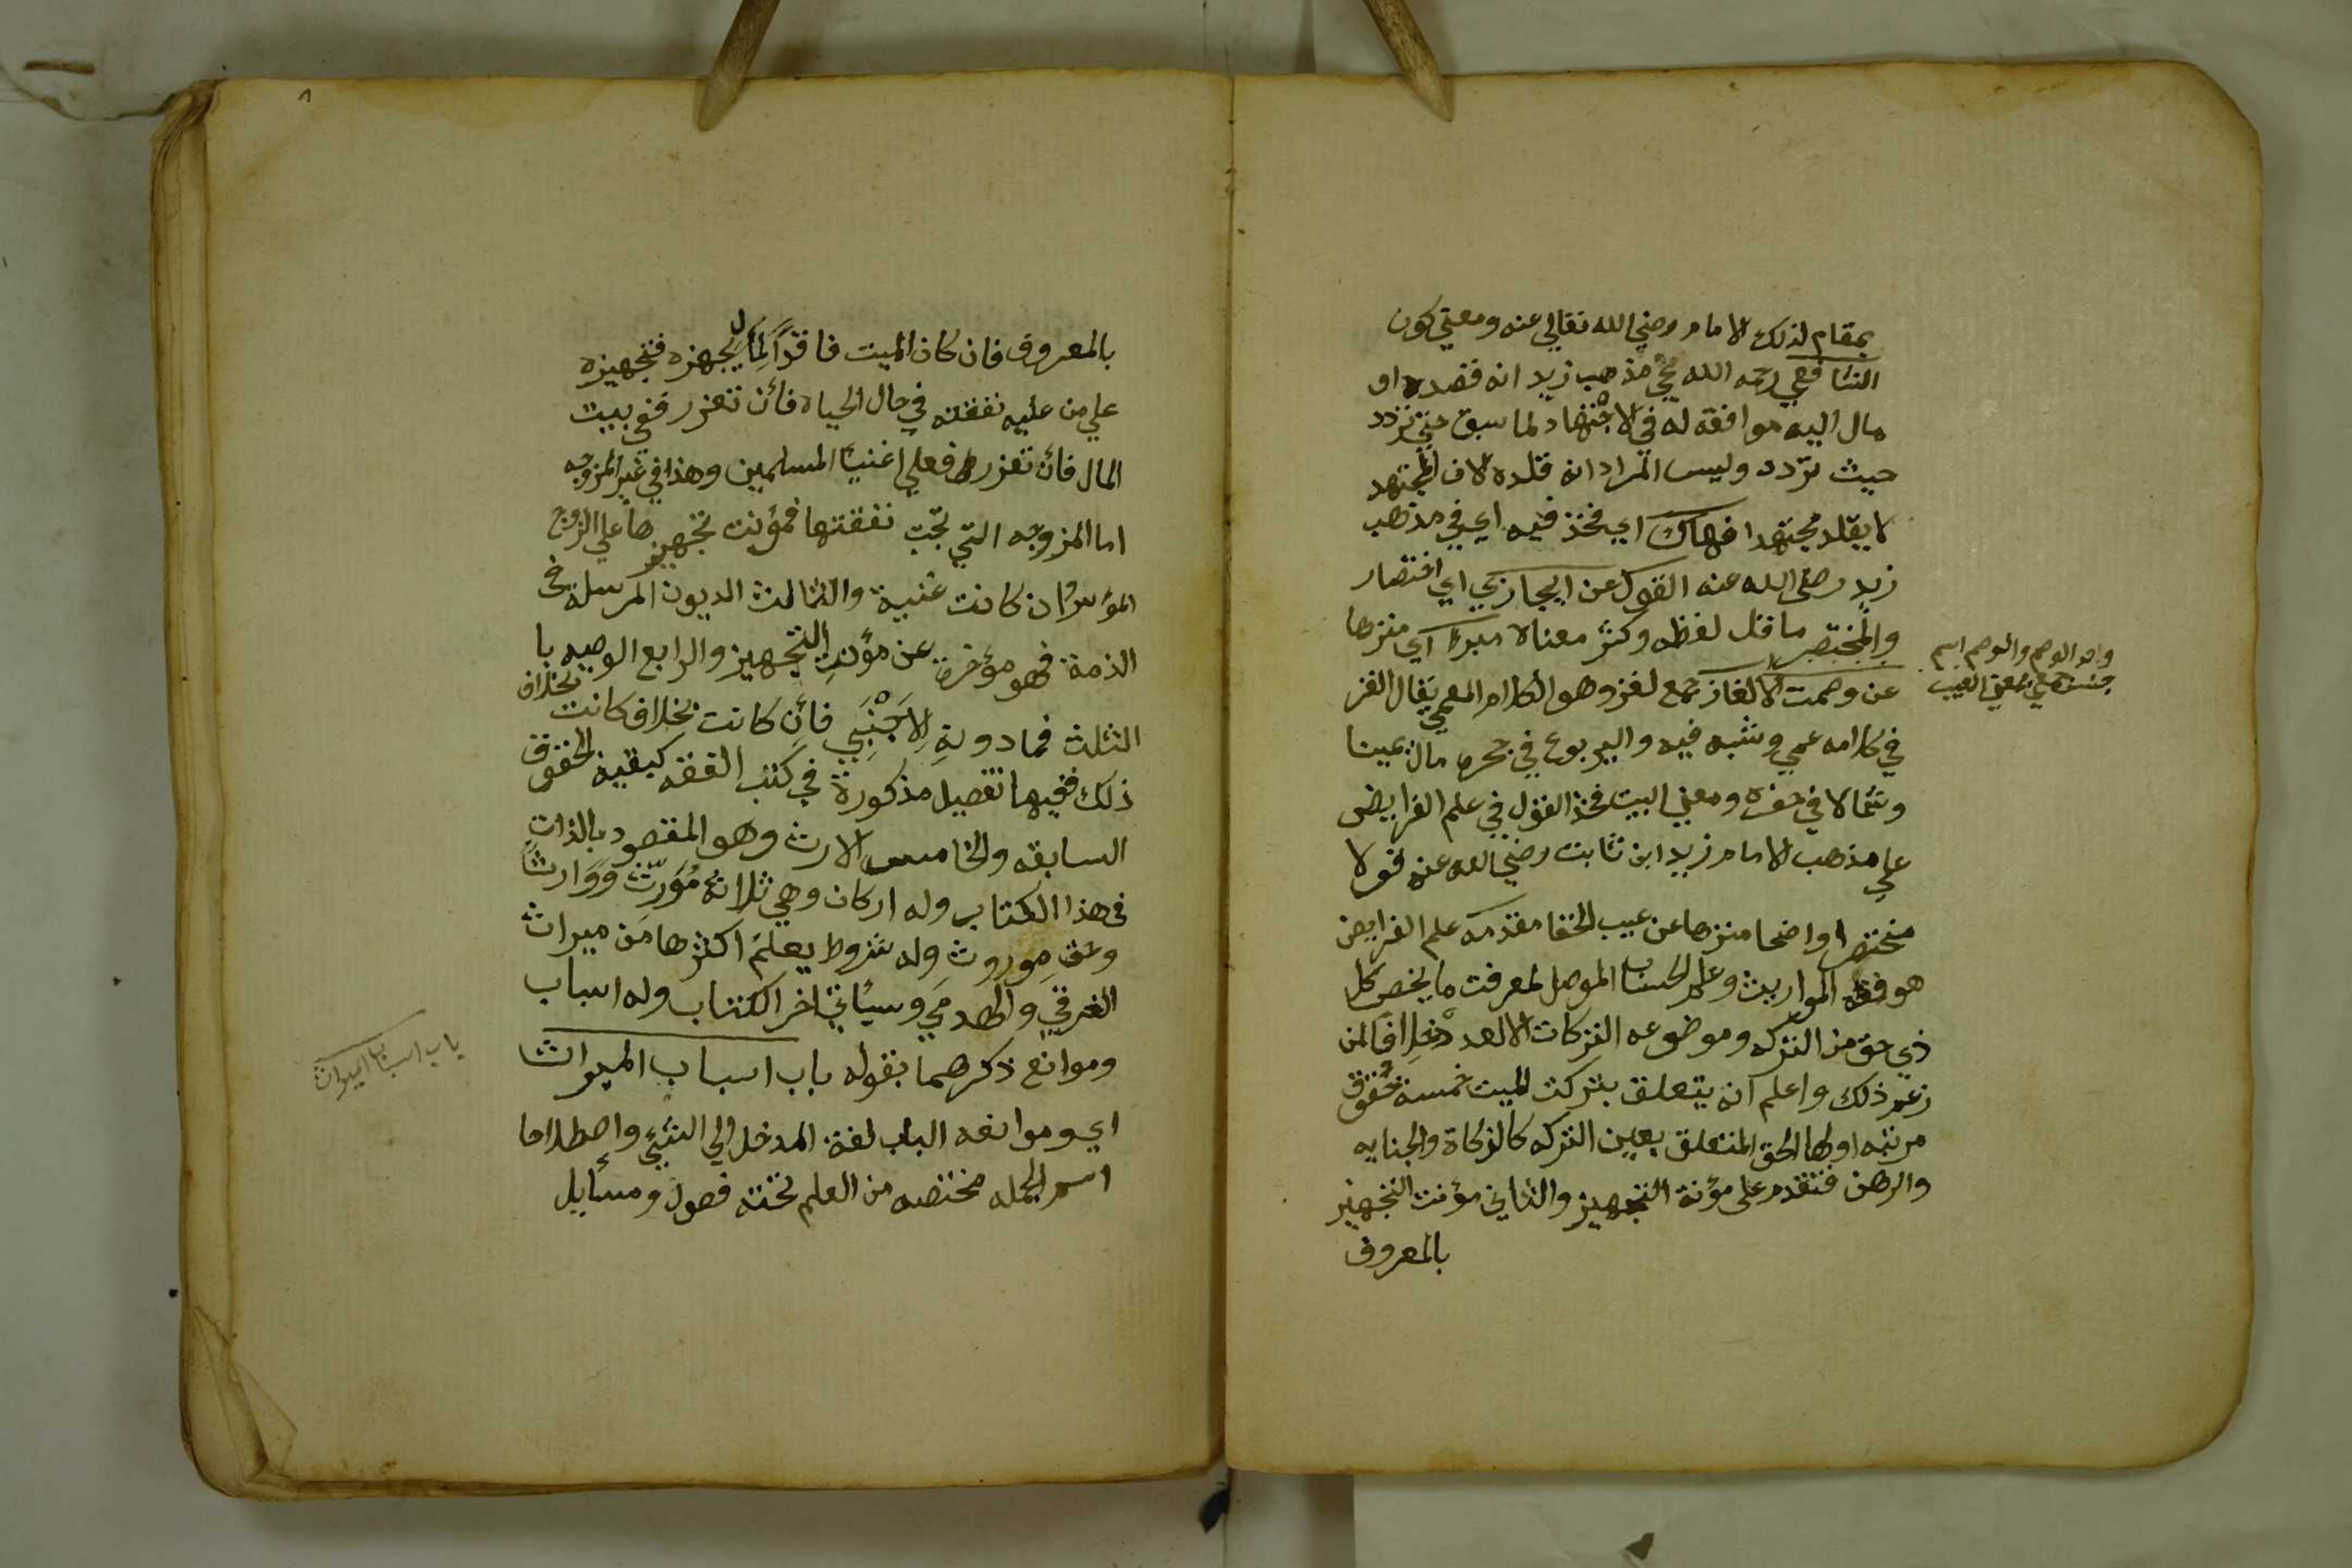 بمقام لذلك الامام رضي الله تعالي عنه ومعني كون
الشافعي رحمه الله نحي مذهب زيد انه قصده او
مال اليه موافقة له في الاجتهاد لما سبق حتي تردد
حيث تردد وليس المراد انه قلده لان المجتهد
لا يقلد مجتهدا فهاك اي فخذ فيه اي في مذهب
زيد رضي الله عنه القول عن ايجاز اي اختصار
والمختصر ما قل لفظه وكثر معناه مبرءا اي منزها
عن وصمت الالغاز جمع لغز وهو الكلام المعمي يقال الغز
في كلامه عمي وشبه فيه واليربوع في جحره مال يمينا
وشمالا في حفره ومعني البيت فخذ القول في علم الفرايض
علي مذهب الامام زيد ابن ثابت رضي الله عنه قولا
مختصرا واضحا منزها عن عيب الخفا مقدمه علم الفرايض
هو فقه المواريث وعلم الحساب الموصل لمعرفت ما يخص كل
ذي حق من التركه وموضوعه التركات لا العدد خلافا لمن
زعم ذلك واعلم انه يتعلق بتركت الميت خمسة حقوق
مرتبه اولها الحق المتعلق بعين التركه كالزكاة والجنايه
والرهن فتقدم علي مؤنة التجهيز والثاني مؤنت التجهيز
بالمعروف
واحد الوصم والوصم اسم
جنس بمعني العيب
٨
بالمعروف فان كان الميت فاقدا لما يجهزه فتجهيزه
علي من عليه نفقته في حال الحياه فأن تعزر ففي بيت
المال فأن تعزر فعلي اغنيا المسلمين وهذا في غير المزوجه
اما المزوجه التي تجب نفقتها فمؤنت تجهيزها علي الزوج
المؤسر وان كانت غنية والثالث الديون المرسلة في
الذمة فهو مؤخرة عن مؤنت التجهيز والرابع الوصيه با
الثلث فما دونه لاجنبي فأن كانت بخلاف كانت بخلاف
ذلك ففيها تفصيل مذكورة في كتب الفقه كبقية الحقوق
السابقه والخامس الارث وهو المقصود بالذات
في هذا الكتاب وله اركان وهي ثلاثه مورث ووارثا
وحق موروث وله شروط يعلم اكثرها من ميراث
الغرقي والهدمي وسيأتي اخر الكتاب وله اسباب
وموانع ذكرهما بقوله باب اسباب الميراث
اي وموانعه الباب لغة المدخل الي الشيئ واصطلاحا
اسم لجمله مختصه من العلم تحته فصول ومسأيل
باب اسباب الميراث